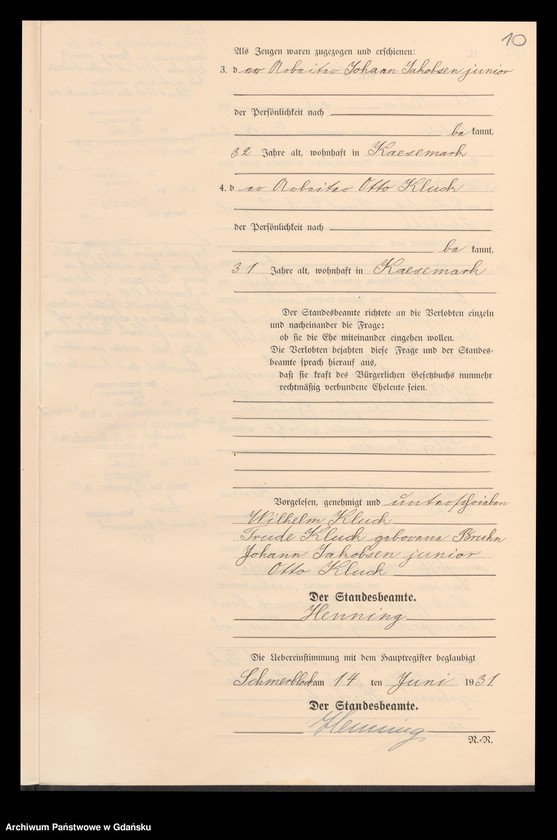 10
Als Zeugen waren zugezogen und erschienen:
3. der Arbeiter Johann Jakobsen junior
der Persönlichkeit nach
be kannt,
32 Jahre alt, wohnhaft in Kaesemark
4. der Arbeiter Otto Kluck
der Persönlichkeit nach
be kannt,
31 Jahre alt, wohnhaft in Kaesemark
Der Standesbeamte richtete an die Verlobten einzeln
und nacheinander die Frage:
ob sie die Ehe miteinander eingehen wollen.
Die Verlobten bejahten diese Frage und der Standes-
beamte sprach hierauf aus,
daß sie kraft des Bürgerlichen Gesetzbuchs nunmehr
rechtmäßig verbundene Eheleute seien.
Vorgelesen, genehmigt und unterschrieben
Wilhelm Kluck
Trude Kluck geborene Bruhn
Johann Jakobsen junior
Otto Kluck
Der Standesbeamte.
Henning
Die Uebereinstimmung mit dem Hauptregister beglaubigt
Schmerblock am 14 ten Juni 1931
Der Standesbeamte.
Henning
N.-R.
Archiwum Państwowe w Gdańsku